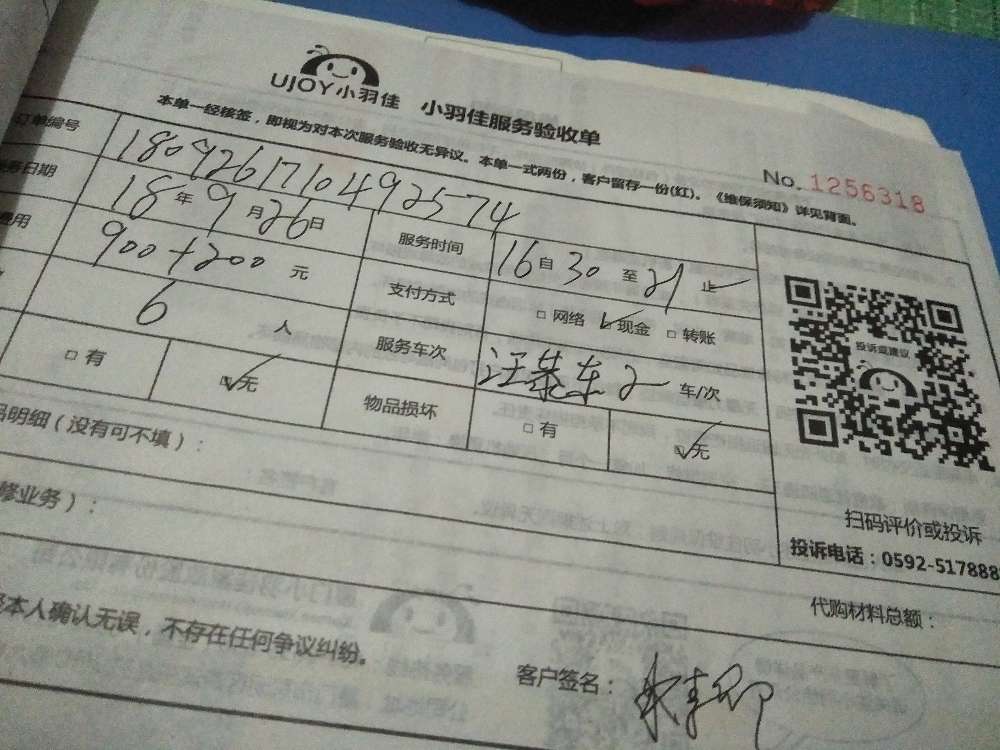 UJOY小羽佳 小羽佳服务验收单
本单一经接签，即视为对本次服务验收无异议。本单一式两份，客户留存一份(红)。《维保须知》详见背面。
No. 1256318
订单编号 180926171049 2574
务日期 18年9月26日 服务时间 16自30至21止
费用 900+200元 支付方式 □网络 ☑现金 □转账
6人 服务车次 2车/次
□有 ☑无 物品损坏 □有 ☑无
投诉或建议
扫码评价或投诉
品明细（没有可不填）：
投诉电话：0592-517888
修业务）：
代购材料总额：
本人确认无误，不存在任何争议纠纷。
客户签名：